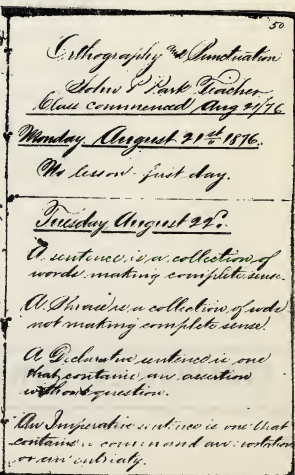 50
Orthography and Punctuation
John R Park Teacher
Class commenced Aug 21/76
Monday August 21st 1876.
No lesson - first day.
Tuesday August 22d.
A sentence is a collection of
words making complete sense.
A Phrase is a collection of wods
not making complete sense.
A Declarative sentence is one
that contains an assertion
without question.
An Imperative sentence is one that
contains a command an
or an entreaty.